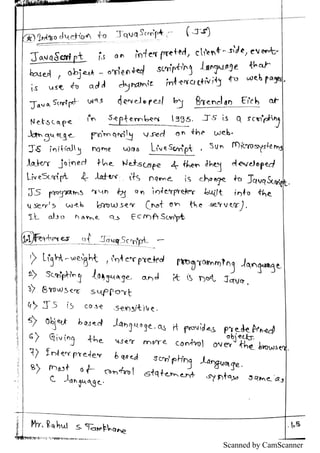 * Introduction to JavaScript - (JS)
JavaScript is an interpreted, client-side, event-
based, object-oriented scripting language that
is use to add dynamic interactivity to web pages.
Java Script was developed by Brendan Eich at
Netscape in September 1995. JS is a scripting
language primarily used on the web.
JS initially name was LiveScript. Sun Microsystems
later joined the Netscape & then they developed
LiveScript & later its name is change to JavaScript.
JS programs run by an interpreter built into the
user's web browser (not on the server).
It also name as ECMAScript
Features of JavaScript -
1) Light-weight, interpreted programming language
2) Scripting language and it is not Java.
3) Browser support
4) JS is case sensitive.
5) Object based language as it provides predefined
objects.
6) Giving the user more control over the browser
7) Interpreter based scripting language.
8) most of control statement syntax same as
C language.
Mr. Rahul S.
Scanned by CamScanner